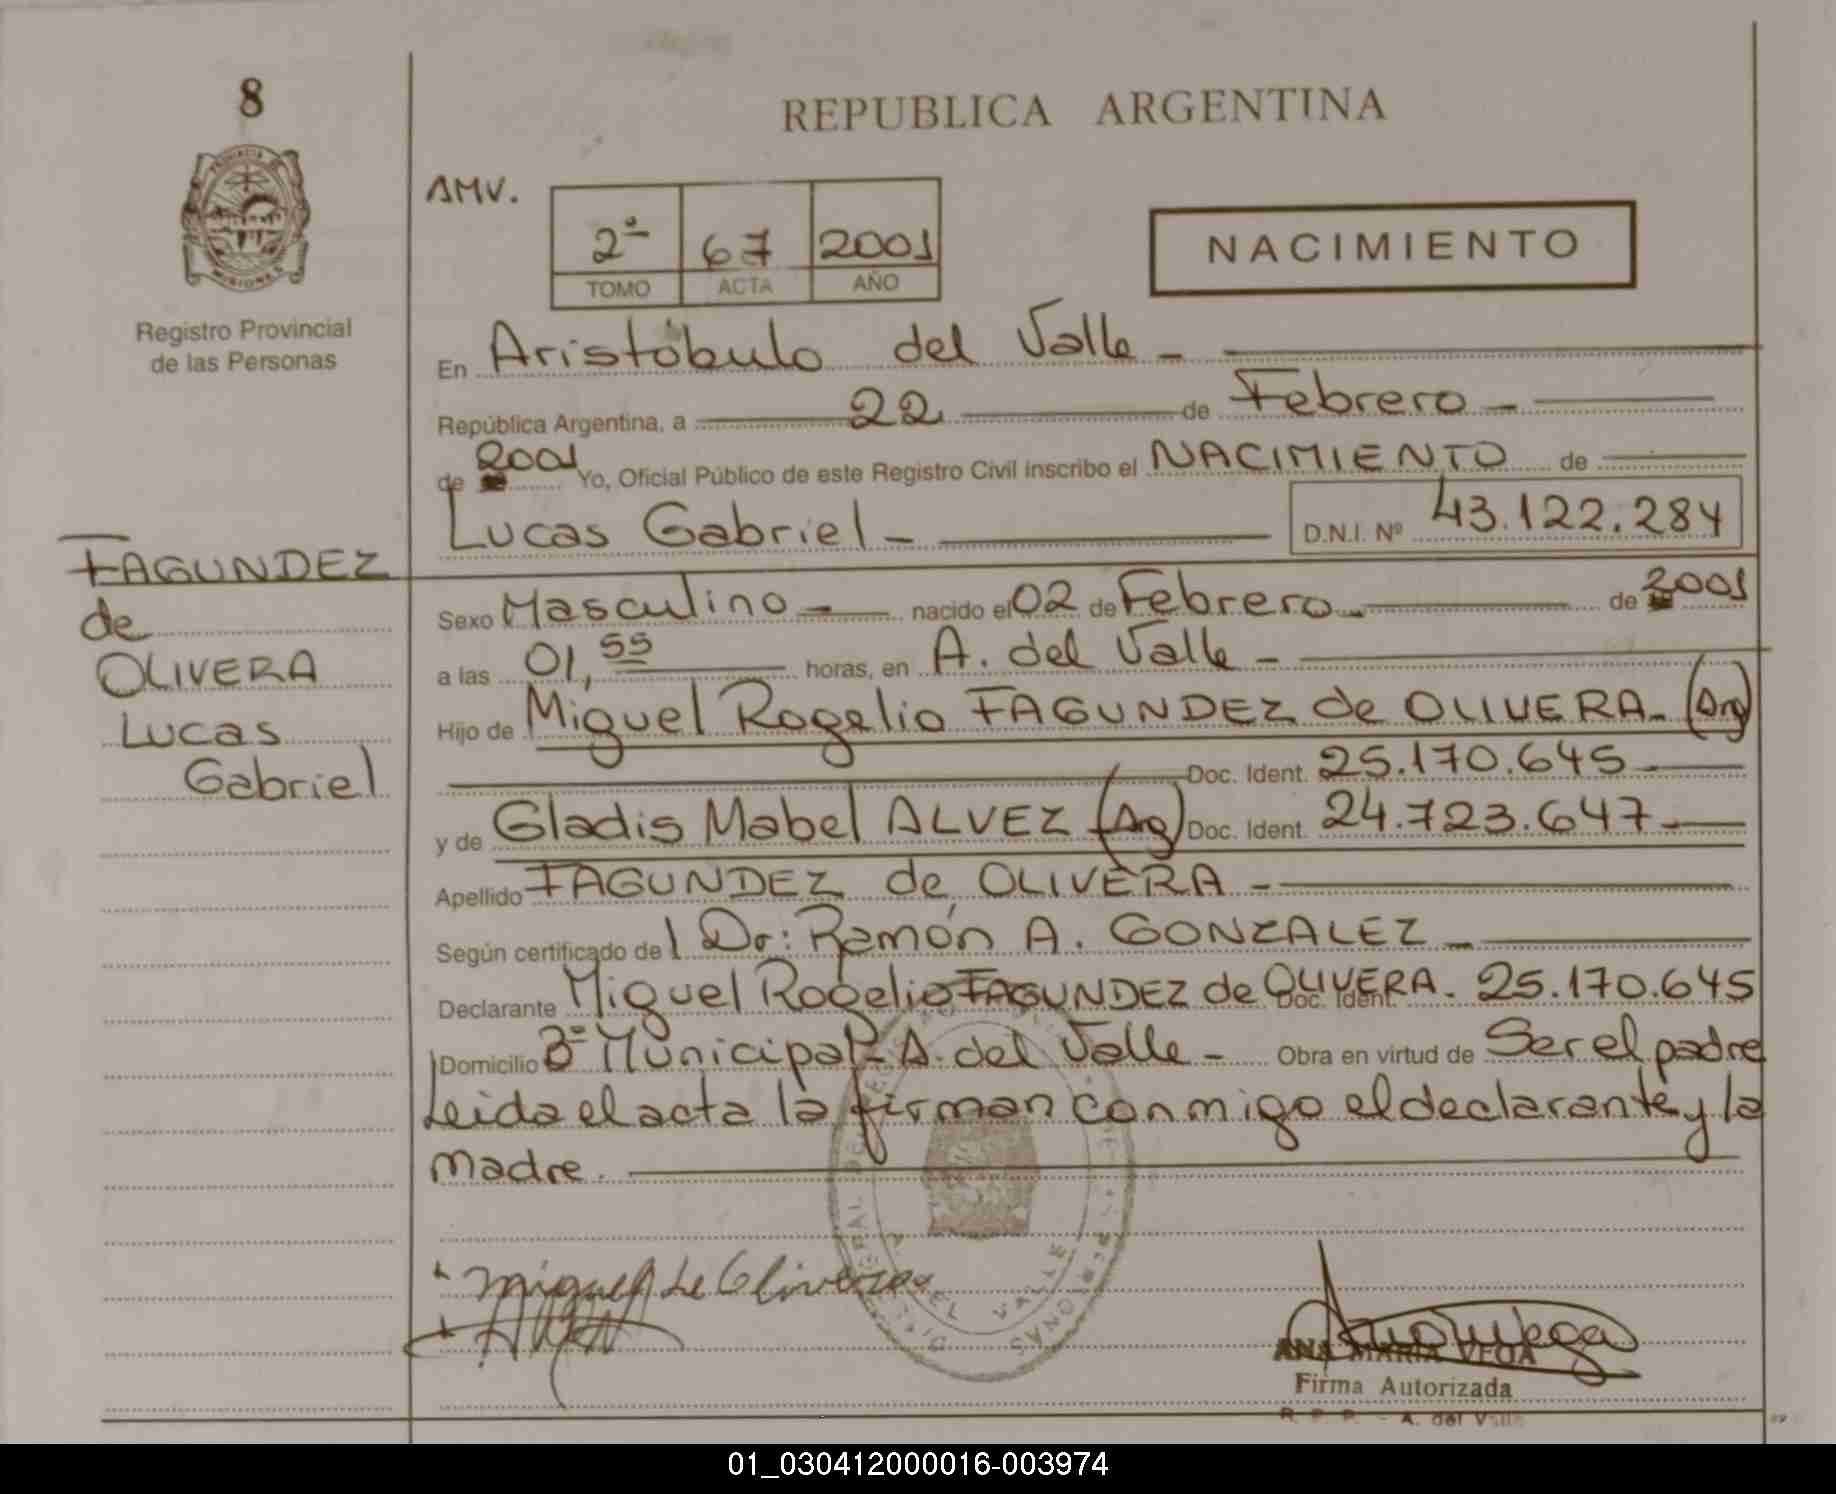 8
REPUBLICA ARGENTINA
PROVINCIA DE
MISIONES
Registro Provincial
de las Personas
AMV.
2º 67 2001
TOMO ACTA AÑO
NACIMIENTO
En Aristóbulo del Valle -
República Argentina, a 22 de Febrero -
de 2001 Yo, Oficial Público de este Registro Civil inscribo el NACIMIENTO de
Lucas Gabriel - D.N.I. Nº 43.122.284
FAGUNDEZ
de
OLIVERA
Lucas
Gabriel
Sexo Masculino - nacido el 02 de Febrero - de 2001
a las 01,55 horas, en A. del Valle -
Hijo de Miguel Rogelio FAGUNDEZ de OLIVERA - (Arg)
Doc. Ident. 25.170.645 -
y de Gladis Mabel ALVEZ (Arg) Doc. Ident. 24.723.647 -
Apellido FAGUNDEZ de OLIVERA -
Según certificado del Dr: Ramón A. GONZALEZ -
Declarante Miguel Rogelio FAGUNDEZ de OLIVERA - Doc. Ident. 25.170.645
Domicilio Bº Municipal - A. del Valle - Obra en virtud de Ser el padre
Leida el acta la firman conmigo el declarante y la
madre.
DEL VALLE
Miguel de Olivera
ANA MARIA VEGA
Firma Autorizada
R. P. P. - A. del Valle
01_030412000016-003974